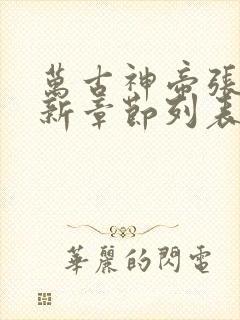 萬古神帝張
新章節列表
華麗的閃電